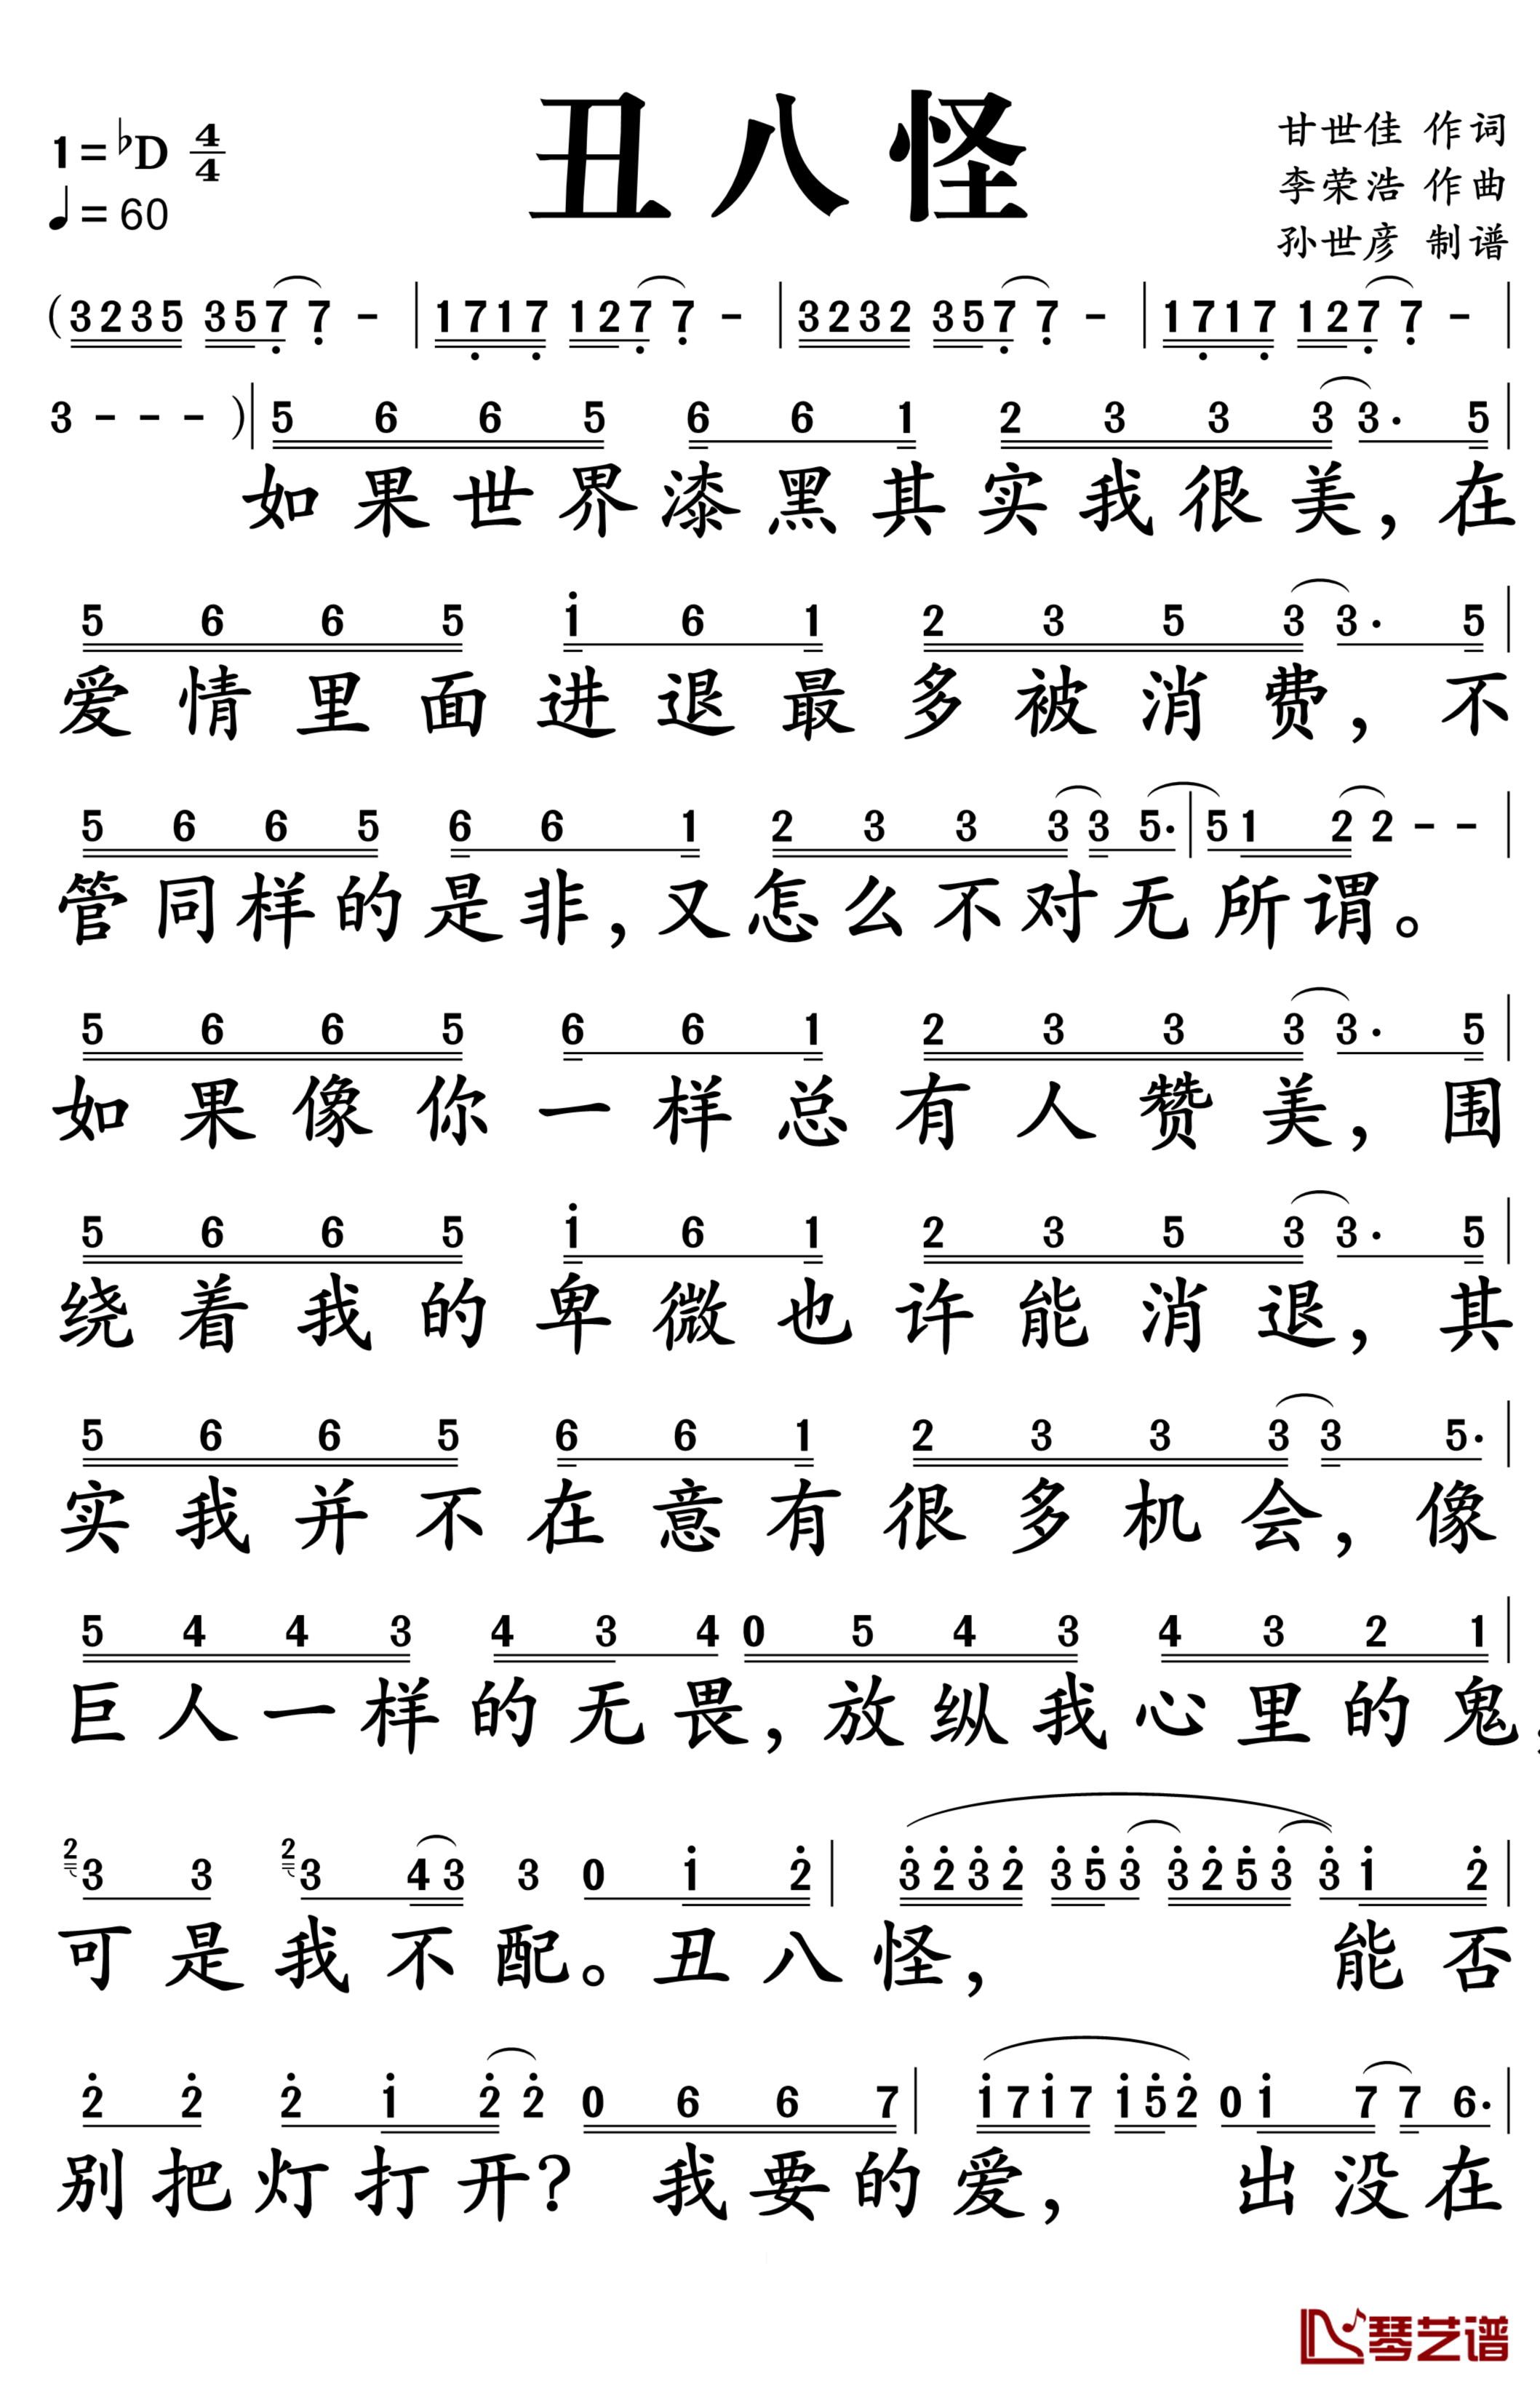 丑八怪
1=♭D 4/4
♩=60
甘世佳 作词
李荣浩 作曲
孙世彦 制谱
(3235 357 7 - | 1717 127 7 - | 3232 357 7 - | 1717 127 7 - |
3 - - - )| 5 6 6 5 6 6 1 2 3 3 3 3· 5 |
如果世界漆黑其实我很美，在
5 6 6 5 i 6 1 2 3 5 3 3· 5 |
爱情里面进退最多被消费，不
5 6 6 5 6 6 1 2 3 3 3 3 5· | 5 1 2 2 - - |
管同样的是非，又怎么不对无所谓。
5 6 6 5 6 6 1 2 3 3 3 3· 5 |
如果像你一样总有人赞美，围
5 6 6 5 i 6 1 2 3 5 3 3· 5 |
绕着我的卑微也许能消退，其
5 6 6 5 6 6 1 2 3 3 3 3 5· |
实我并不在意有很多机会，像
5 4 4 3 4 3 4 0 5 4 3 4 3 2 1 |
巨人一样的无畏，放纵我心里的鬼，
2 3 3 2 3 4 3 3 0 i 2 | 3 2 3 2 3 5 3 3 2 5 3 3 i 2 |
可是我不配。丑八怪，能否
2 2 2 i 2 2 0 6 6 7 | i 7 i 7 i 5 2 0 i 7 7 6· |
别把灯打开？我要的爱，出没在
琴艺谱